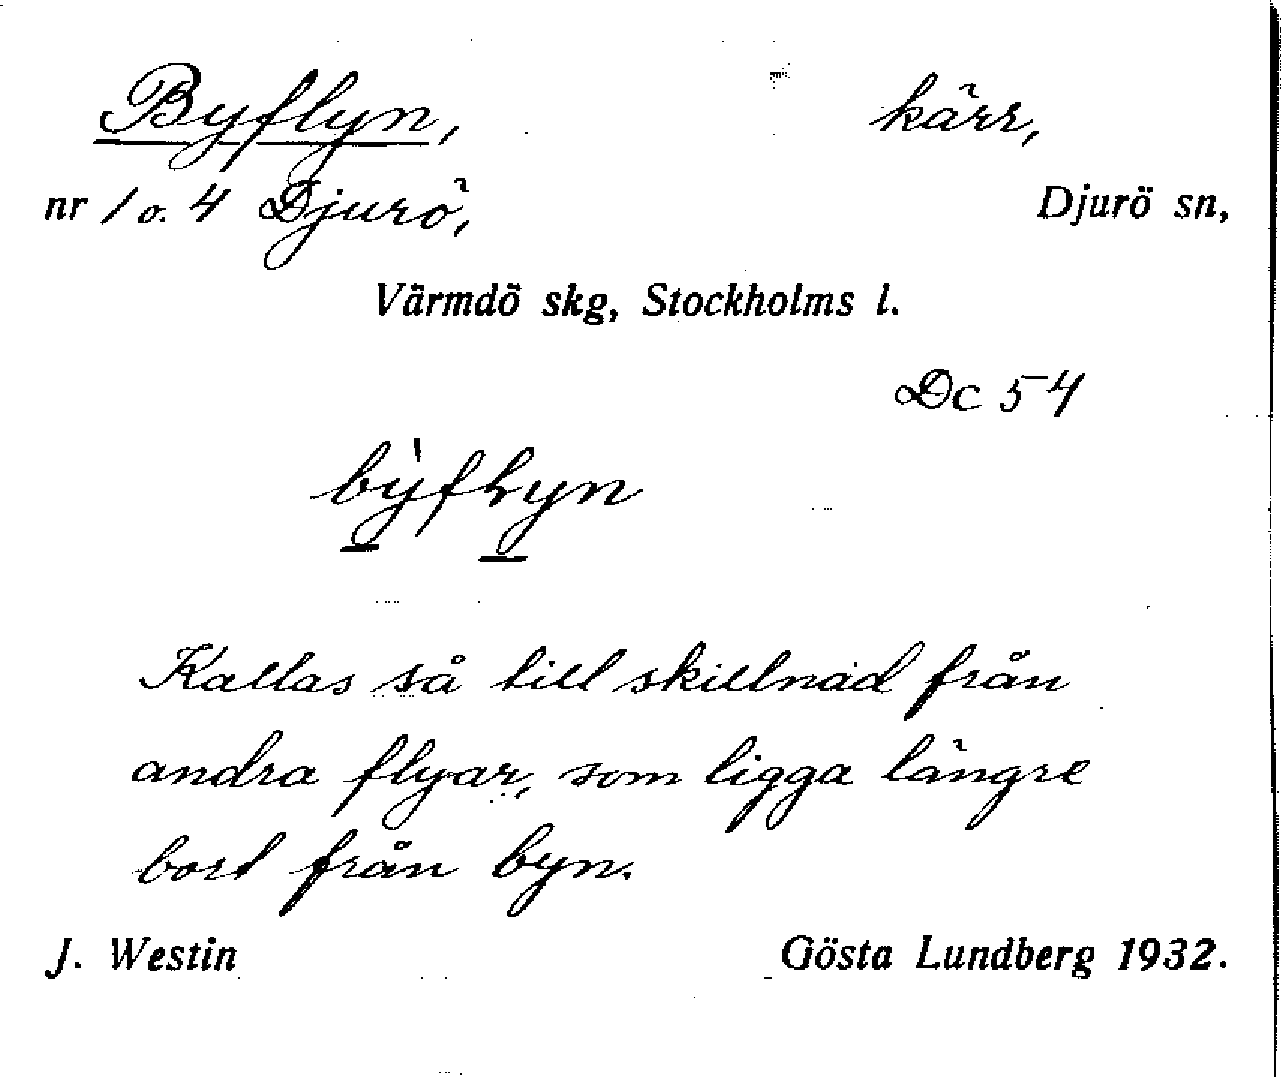 Byflyn, kärr,
nr 1 o. 4 Djurö, Djurö sn,
Värmdö skg, Stockholms l.
Dc 54
by̠̍fɫy̠n
Kallas så till skillnad från
andra flyar, som ligga längre
bort från byn.
J. Westin Gösta Lundberg 1932.